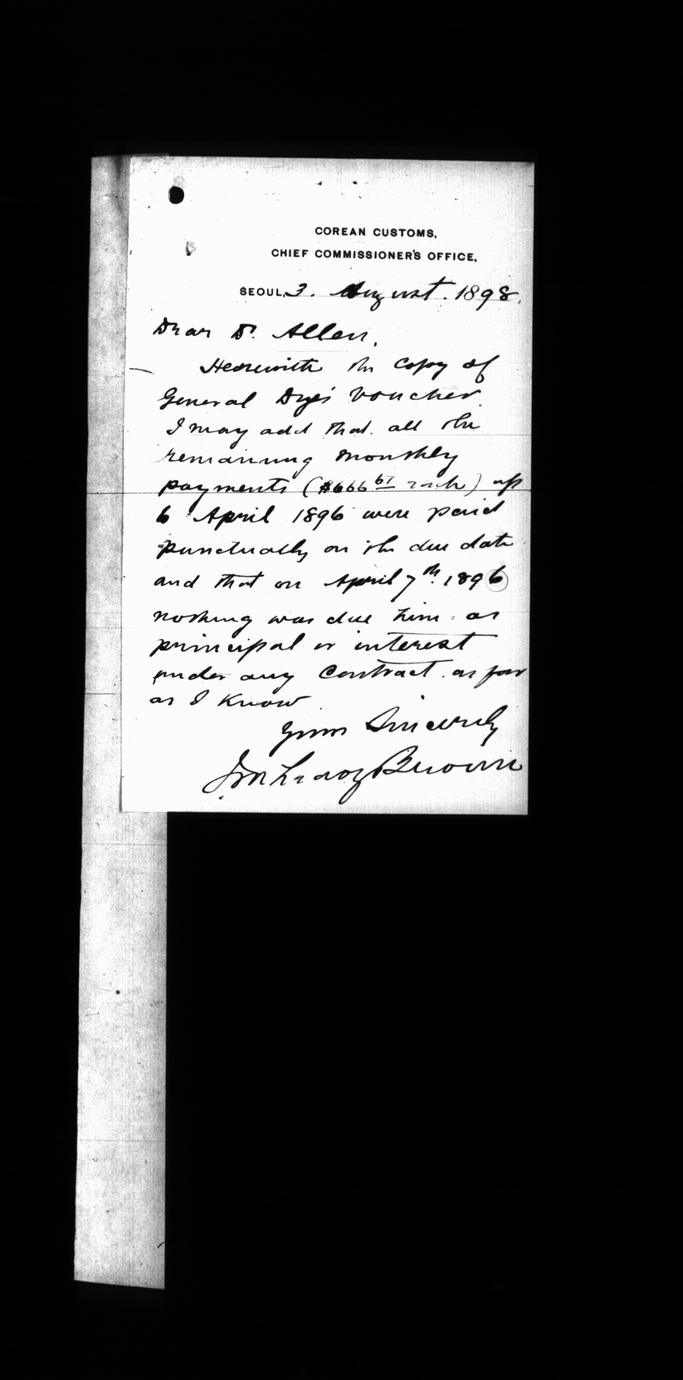 COREAN CUSTOMS,
CHIEF COMMISSIONER'S OFFICE,
SEOUL, 3. August. 1898.
Dear Dr. Allen,
Herewith the copy of
General Dye's voucher.
I may add that all the
remaining monthly
payments ($666 67 each) up
6 April 1896 were paid
punctually on the due date
and that on April 7th. 1896
nothing was due him as
principal or interest
under any contract as far
as I know
Yours Sincerely
J McLeavy Brown